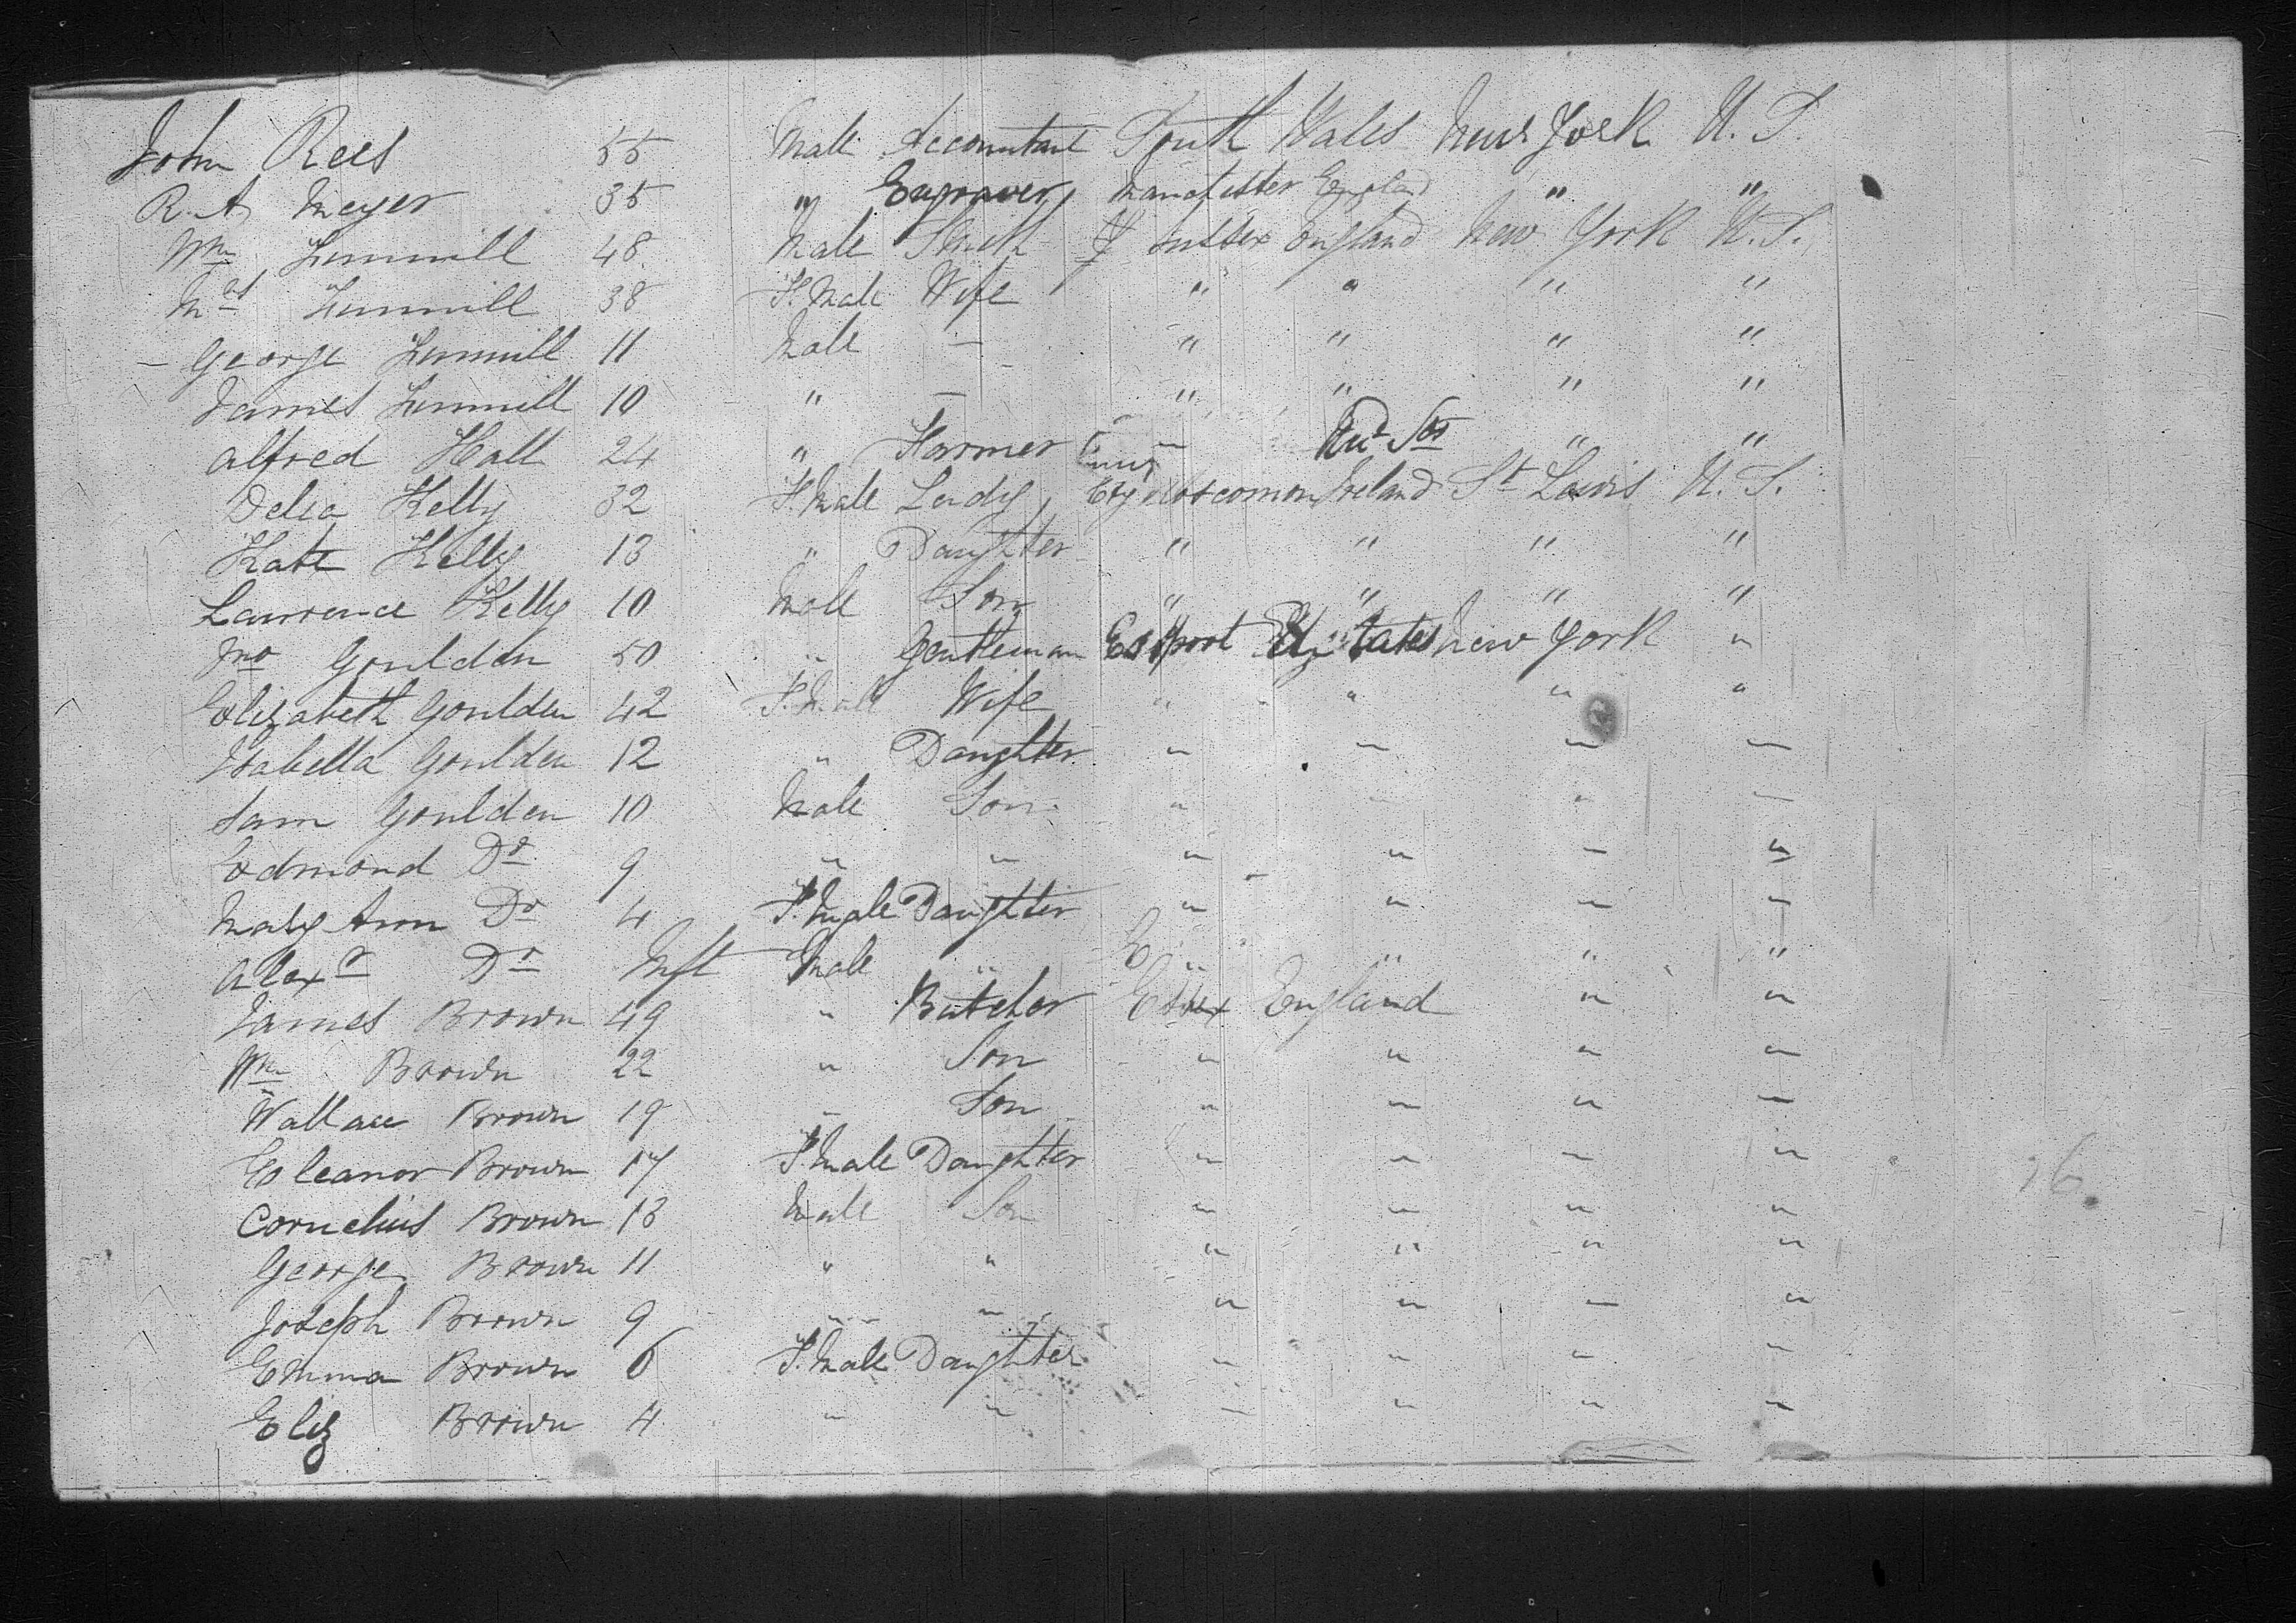 John Rees 55 Male Accountant South Wales New York U. S.
R. A. Meyer 35 " Engraver Manchester England " "
Wm Lummill 48 Male Smith Sussex England New York U. S.
Mrs Lummill 38 F. Male Wife " " " "
- George Lummill 11 Male - " " " "
James Lummill 10 " - " " " "
Alfred Hall 24 " Farmer " "
Delia Kelly 32 F. Male Lady Roscomon Ireland St Louis U. S.
Kate Kelly 13 " Daughter " " " "
Lawrence Kelly 10 Male Son " " " "
Jno Goulden 50 " Gentleman New York "
Elizabeth Goulden 42 F. Male Wife " " " "
Isabella Goulden 12 " Daughter " " " "
Sam Goulden 10 Male Son " " " "
Edmond Do 9 " " " " " "
Mary Ann Do 4 F. Male Daughter " " " "
Alexr Do Inft Male " " " " "
James Brown 49 " Butcher Essex England " "
Wm Brown 22 " Son " " " "
Wallace Brown 19 " Son " " " "
Eleanor Brown 17 F. Male Daughter " " " "
Cornelius Brown 13 Male Son " " " "
George Brown 11 " " " " " "
Joseph Brown 9 " " " " " "
Emma Brown 6 F. Male Daughter " " " "
Eliz Brown 4 " " " " " "